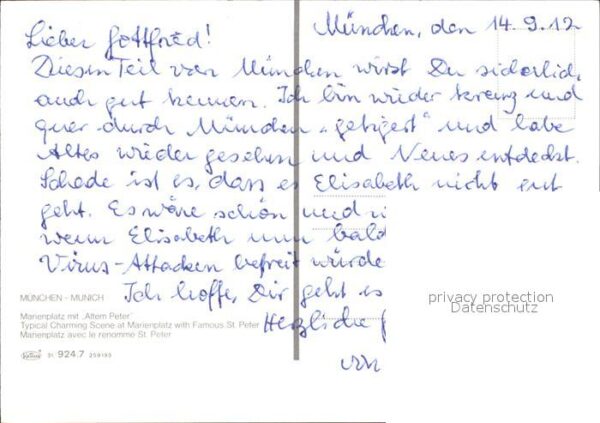 München, den 14.9.12
Lieber Gottfried!
Diesen Teil von München wirst Du sicherlich
auch gut kennen. Ich bin wieder kreuz und
quer durch München „getigert“ und habe
Altes wieder gesehen und Neues entdeckt.
Schade ist es, dass es Elisabeth nicht gut
geht. Es wäre schön und
wenn Elisabeth nun bald
Virus-Attacken befreit würde
Ich hoffe, Dir geht es
Herzliche
von
MÜNCHEN - MUNICH
Marienplatz mit „Altem Peter“
Typical Charming Scene at Marienplatz with Famous St. Peter
Marienplatz avec le renommé St. Peter
924.7
privacy protection
Datenschutz